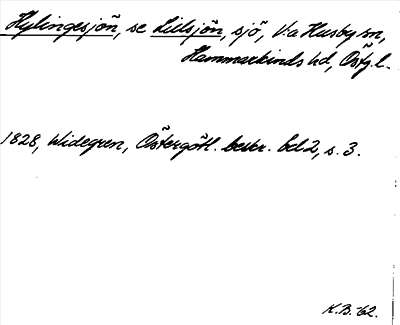 Hylingesjön, se Lillsjön, sjö, V:a Husby sn,
Hammarkinds hd, Östg.l.
1828, Widegren, Östergötl. beskr. bd 2, s. 3.
K.B. '62.